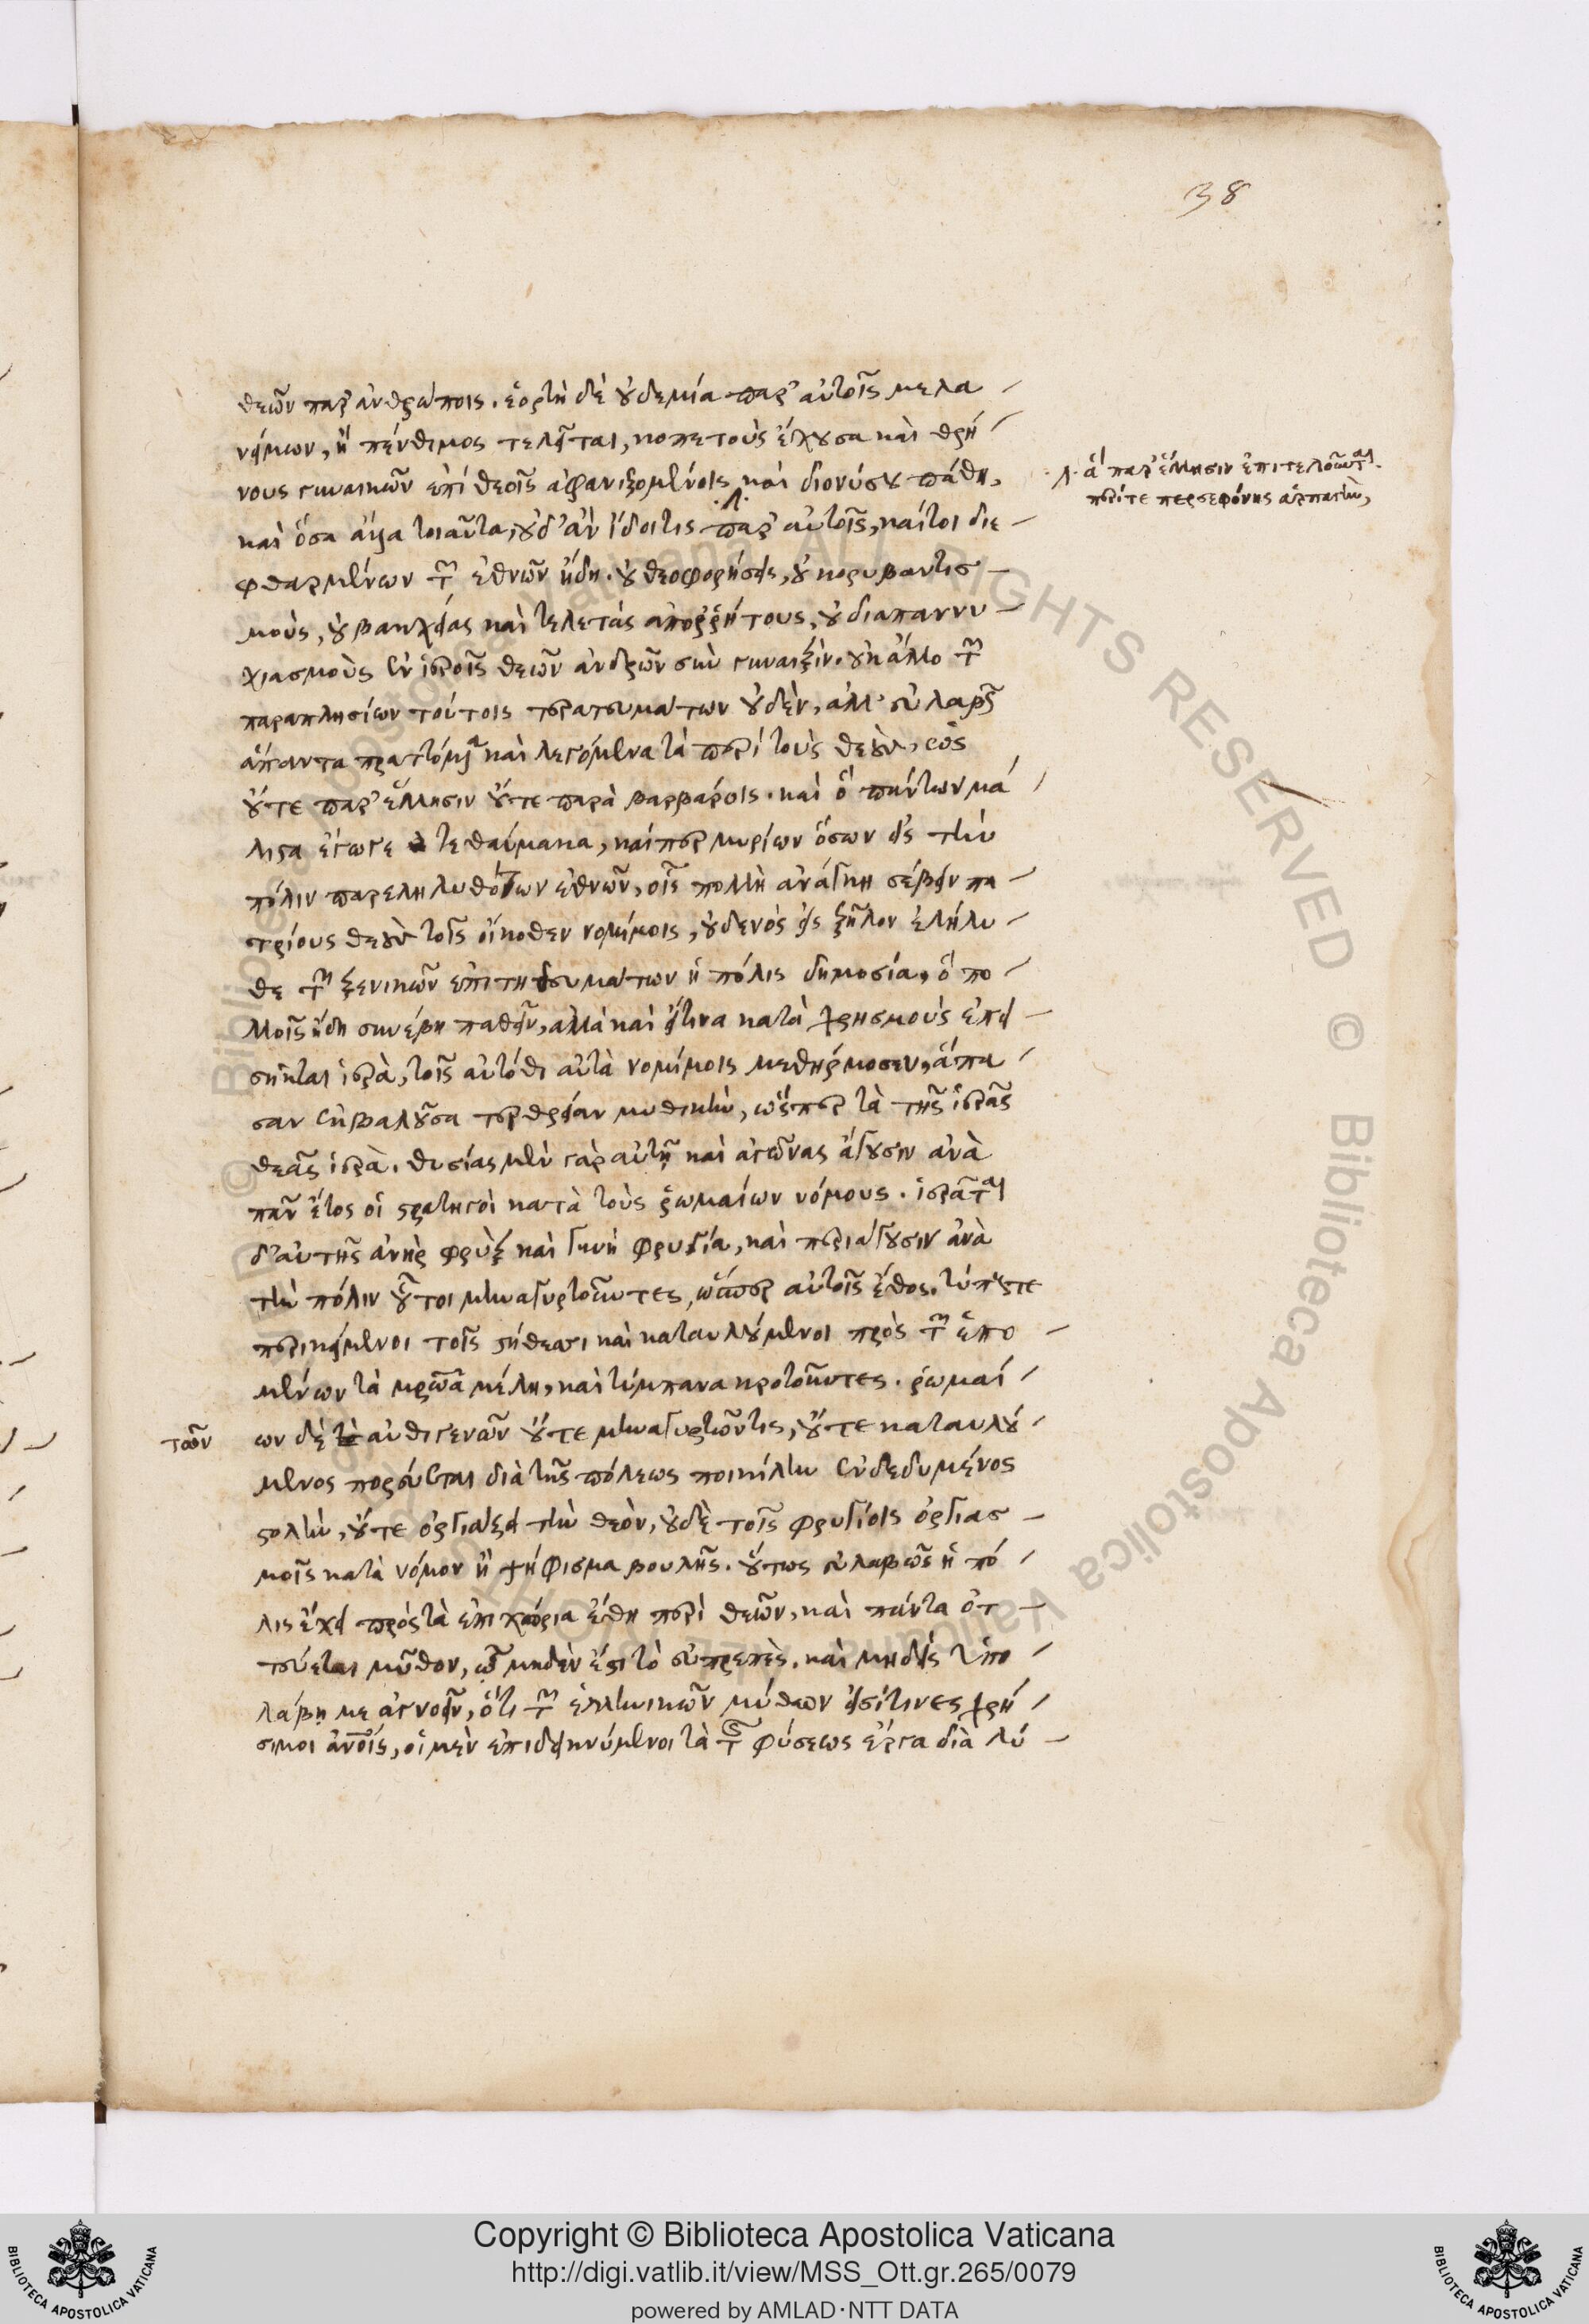 38
θεῶν παρ' ἀνθρώποις. ἑορτὴ δὲ οὐδεμία παρ' αὐτοῖς μελα
νείμων, ἢ πένθιμος τελεῖται, κοπετοὺς ἔχουσα καὶ θρή
νους γυναικῶν ἐπὶ θεοῖς ἀφανιζομένοις, καὶ διονύσου πάθη,
καὶ ὅσα ἄλλα τοιαῦτα, οὐδ' ἂν ἴδοι τις παρ' αὐτοῖς, καίτοι διε
φθαρμένων τῶν ἐθνῶν ἤδη. οὐ θεοφορήσεις, οὐ κορυβαντισ
μοὺς, οὐ βακχείας καὶ τελετὰς ἀπορρήτους, οὐ διαπαννυ
χιασμοὺς ἐν ἱεροῖς θεῶν ἀνδρῶν σὺν γυναιξὶν. οὐκ ἄλλο τῶν
παραπλησίων τούτοις τερατευμάτων οὐδὲν, ἀλλ' εὐλαβῶς
ἅπαντα πραττόμενα καὶ λεγόμενα τὰ περὶ τοὺς θεοὺς, ὡς
οὔτε παρ' ἕλλησιν οὔτε παρὰ βαρβάροις. καὶ ὃ πάντων μά
λιστα ἔγωγε τεθαύμακα, καίπερ μυρίων ὅσων εἰς τὴν
πόλιν παρεληλυθότων ἐθνῶν, οἷς πολλὴ ἀνάγκη σέβειν πα
τρίους θεοὺς τοῖς οἴκοθεν νομίμοις, οὐδενὸς εἰς ζῆλον ἐλήλυ
θε τῶν ξενικῶν ἐπιτηδευμάτων ἡ πόλις δημοσία, ὃ πο
λλοῖς ἤδη συνέβη παθεῖν, ἀλλὰ καὶ εἴ τινα κατὰ χρησμοὺς ἐπει
σῆκται ἱερὰ, τοῖς αὐτόθι αὐτὰ νομίμοις μεθήρμοσεν, ἅπα
σαν ἐκβαλοῦσα τερθρείαν μυθικὴν, ὥσπερ τὰ τῆς ἱερᾶς
θεᾶς ἱερὰ. θυσίας μὲν γὰρ αὐτῇ καὶ ἀγῶνας ἄγουσιν ἀνὰ
πᾶν ἔτος οἱ στρατηγοὶ κατὰ τοὺς ῥωμαίων νόμους. ἱερᾶται
δ' αὐτῆς ἀνὴρ φρὺξ καὶ γυνὴ φρυγία, καὶ περιάγουσιν ἀνὰ
τὴν πόλιν οὗτοι μηναγυρτοῦντες, ὥσπερ αὐτοῖς ἔθος. τύπους τε
περικείμενοι τοῖς στήθεσι καὶ καταυλούμενοι πρὸς τῶν ἑπο
μένων τὰ μητρῷα μέλη, καὶ τύμπανα κροτοῦντες. ῥωμαί
ων δὲ αὐθιγενῶν οὔτε μηναγυρτῶν τις, οὔτε καταυλού
μενος πορεύεται διὰ τῆς πόλεως ποικίλην ἐνδεδυμένος
στολὴν, οὔτε ὀργιάζει τὴν θεὸν, οὐδὲ τοῖς φρυγίοις ὀργιασ
μοῖς κατὰ νόμον ἢ ψήφισμα βουλῆς. οὕτως εὐλαβῶς ἡ πό
λις ἔχει πρὸς τὰ ἐπιχώρια ἔθη περὶ θεῶν, καὶ πάντα ὀτ
τεύεται μῦθον, ᾧ μηδὲν ἔστι τὸ εὐπρεπὲς. καὶ μηδεὶς ὑπο
λάβῃ με ἀγνοεῖν, ὅτι τῶν ἑλληνικῶν μύθων εἰσί τινες χρή
σιμοι ἀνοις, οἱ μὲν ἐπιδεικνύμενοι τὰ τῆς φύσεως ἔργα διὰ λύ
λ. ἃ παρ' ἕλλησιν ἐπιτελοῦνται.
περί τε περσεφόνης ἁρπαγὴν,
τῶν
Copyright © Biblioteca Apostolica Vaticana
http://digi.vatlib.it/view/MSS_Ott.gr.265/0079
powered by AMLAD·NTT DATA
BIBLIOTECA APOSTOLICA VATICANA
BIBLIOTECA APOSTOLICA VATICANA